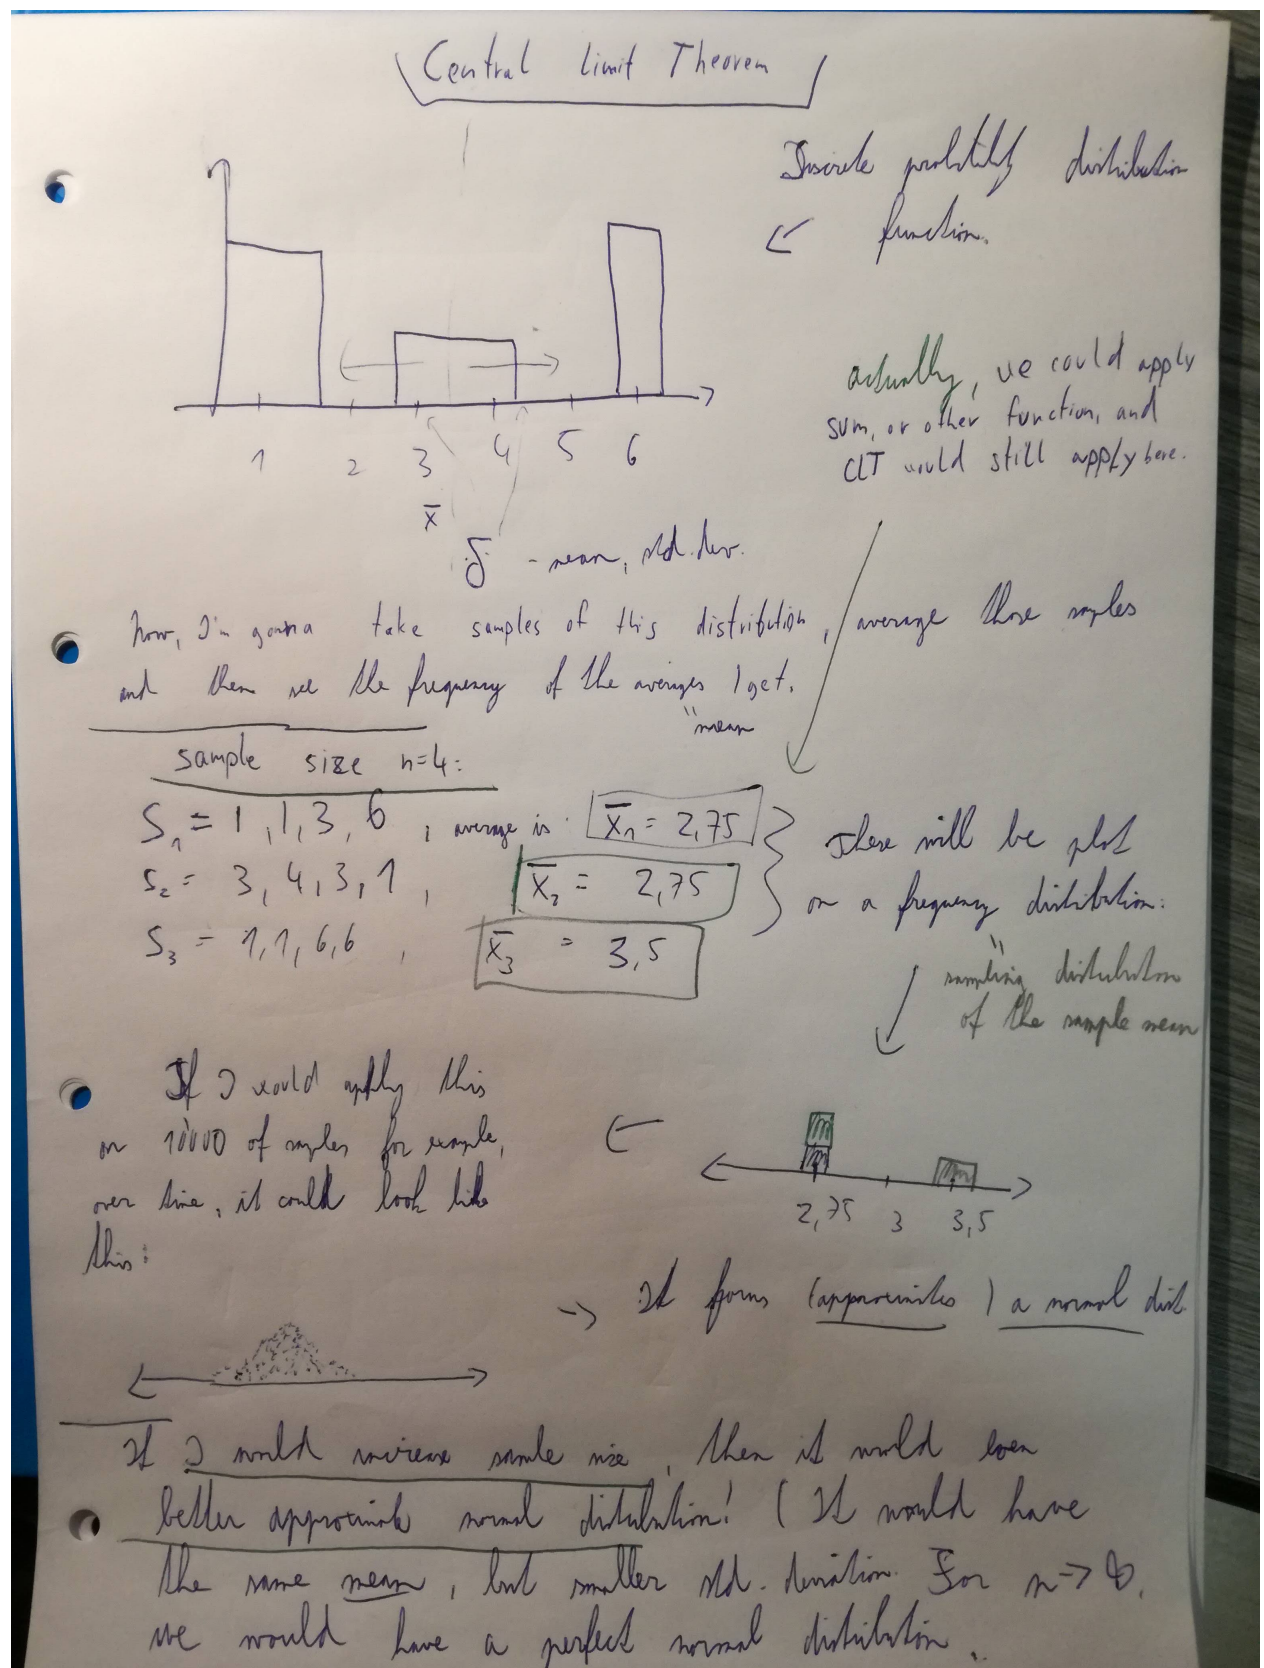 Central Limit Theorem
Discrete probability distribution
function.
actually, we could apply
sum, or other function, and
CLT would still apply here.
1 2 3 4 5 6
x̄
δ - mean, std. dev.
Now, I'm gonna take samples of this distribution, average those samples
and then see the frequency of the averages I get.
"mean
sample size n=4:
S₁ = 1, 1, 3, 6, average is x̄₁ = 2,75
S₂ = 3, 4, 3, 1, x̄₂ = 2,75
S₃ = 1, 1, 6, 6, x̄₃ = 3,5
There will be plot
on a frequency distribution:
"sampling distribution
of the sample mean
If I would apply this
on 10000 of samples for example,
over time, it could look like
this:
2,75 3 3,5
-> It forms (approximates) a normal dist.
If I would increase sample size, then it would even
better approximate normal distribution! (It would have
the same mean, but smaller std. deviation. For n->∞,
we would have a perfect normal distribution.